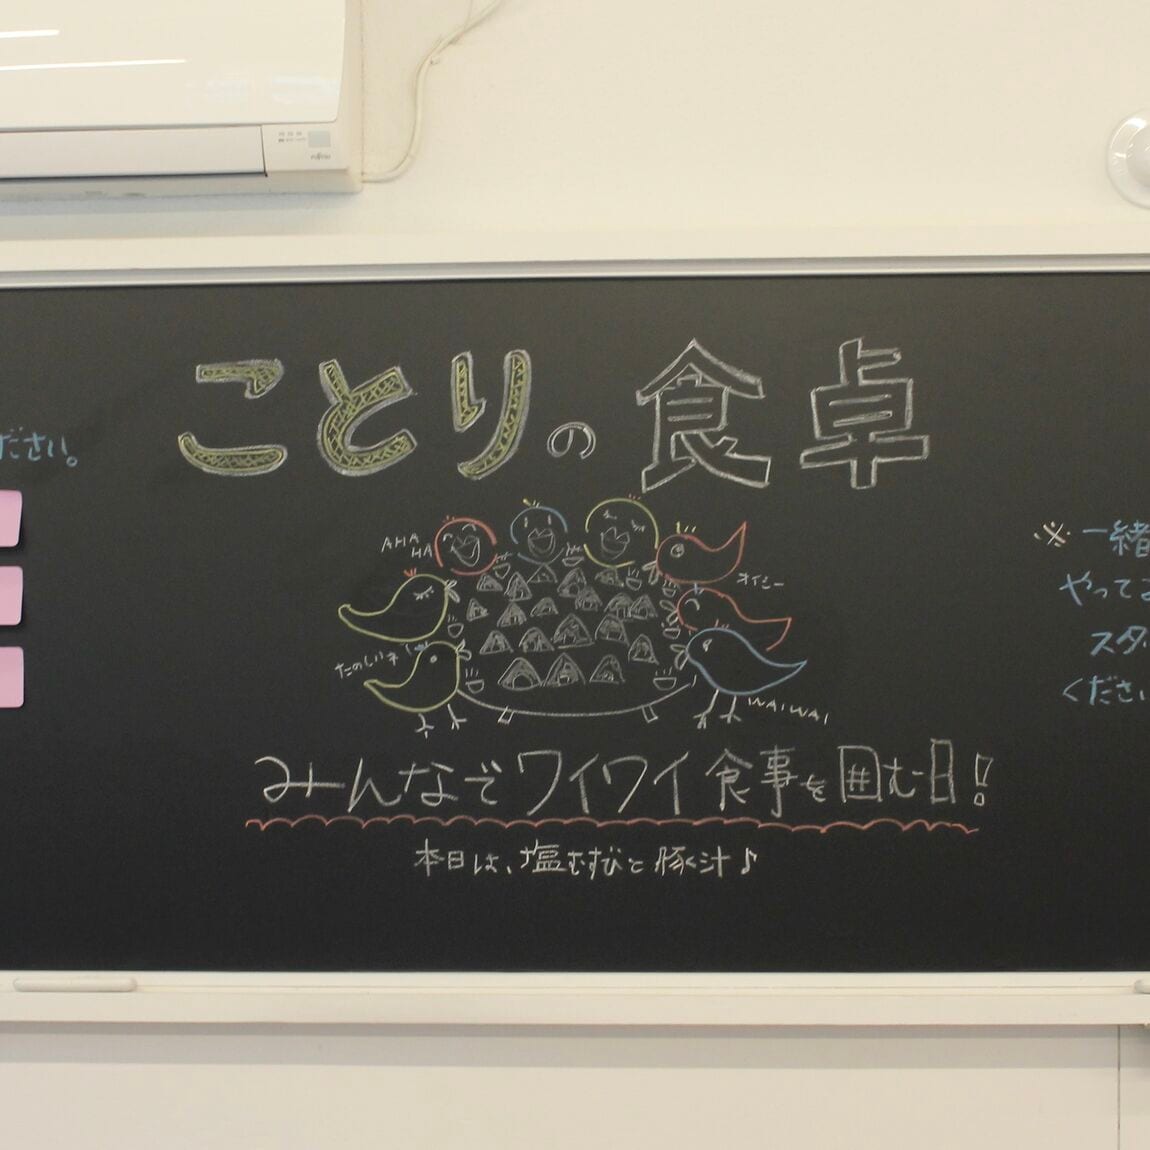 FUJITSU
ことりの食卓
ださい。
AHA
HA
オイシー
たのしいネ
WAIWAI
みんなでワイワイ食事を囲む日!
本日は、塩むすびと豚汁♪
※一緒
やって
スタ
くださ